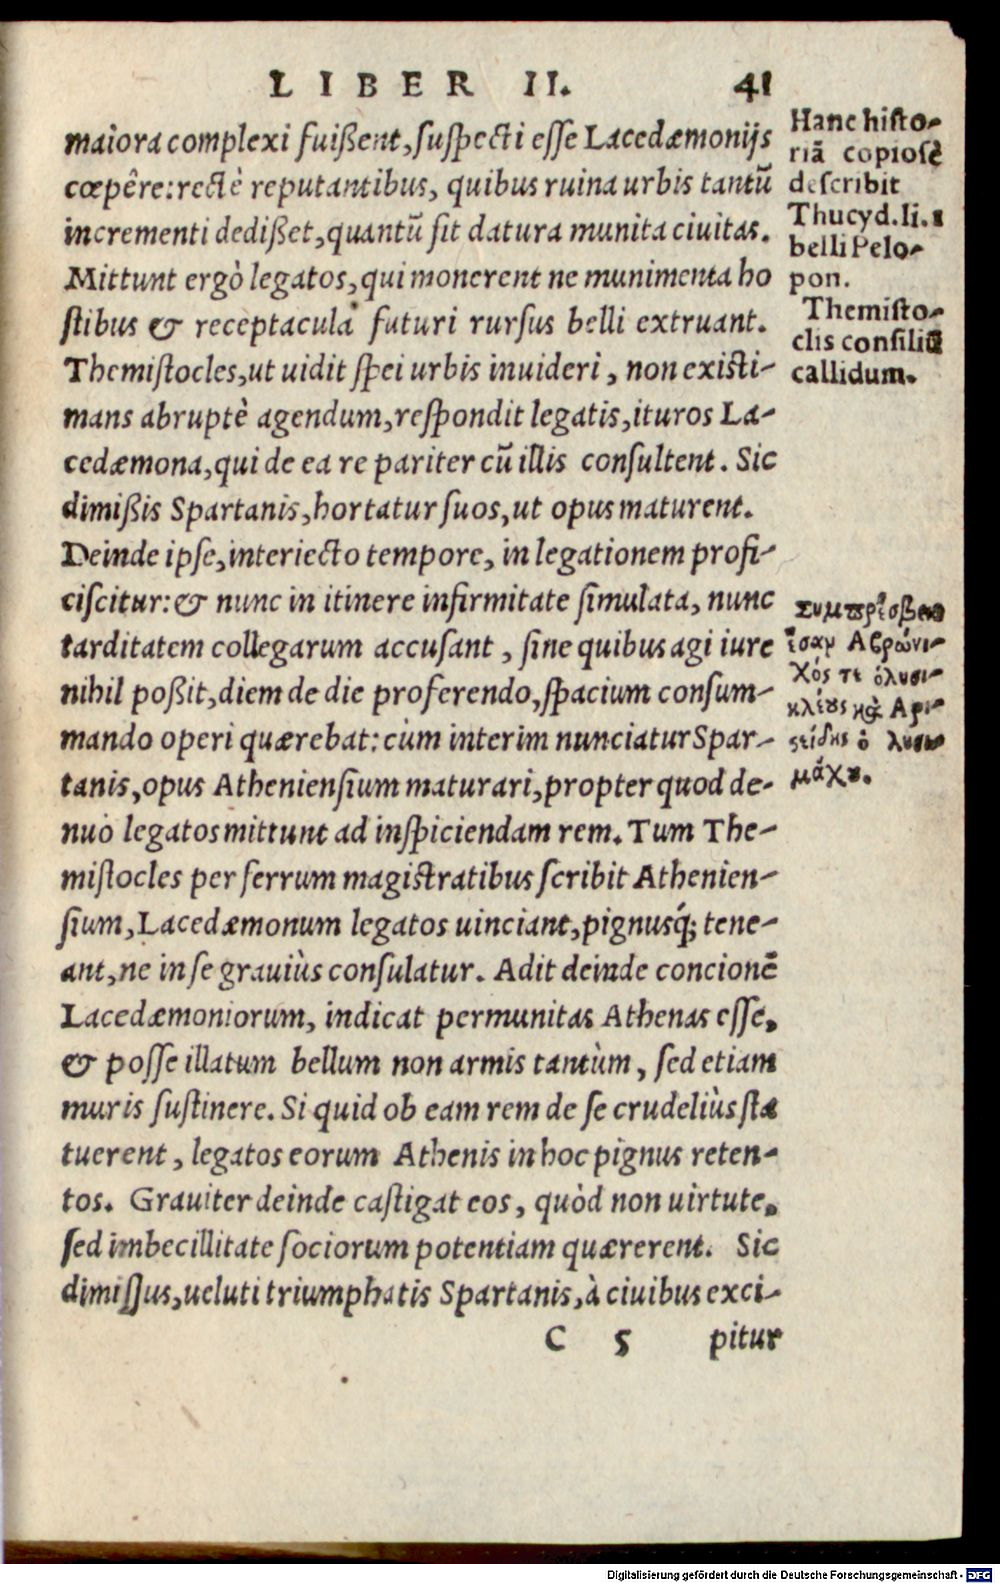 LIBER II. 41
maiora complexi fuißent, suspecti esse Lacedæmonijs
cœpêre: rectè reputantibus, quibus ruina urbis tantũ
incrementi dedißet, quantũ sit datura munita ciuitas.
Mittunt ergò legatos, qui monerent ne munimenta ho
stibus & receptacula futuri rursus belli extruant.
Themistocles, ut uidit spei urbis inuideri, non existi-
mans abruptè agendum, respondit legatis, ituros La-
cedæmona, qui de ea re pariter cũ illis consultent. Sic
dimißis Spartanis, hortatur suos, ut opus maturent.
Deinde ipse, interiecto tempore, in legationem profi-
ciscitur: & nunc in itinere infirmitate simulata, nunc
tarditatem collegarum accusant, sine quibus agi iure
nihil poßit, diem de die proferendo, spacium consum-
mando operi quærebat: cùm interim nunciatur Spar-
tanis, opus Atheniensium maturari, propter quod de-
nuò legatos mittunt ad inspiciendam rem. Tum The-
mistocles per serrum magistratibus scribit Athenien-
sium, Lacedæmonum legatos uinciant, pignusq́; tene-
ant, ne in se grauiùs consulatur. Adit deinde concionẽ
Lacedæmoniorum, indicat permunitas Athenas esse,
& posse illatum bellum non armis tantùm, sed etiam
muris sustinere. Si quid ob eam rem de se crudeliùs sta
tuerent, legatos eorum Athenis in hoc pignus reten-
tos. Grauiter deinde castigat eos, quòd non uirtute,
sed imbecillitate sociorum potentiam quærerent. Sic
dimissus, ueluti triumphatis Spartanis, à ciuibus exci-
C 5 pitur
Hanc histo-
riã copiosè
describit
Thucyd. li. 1
belli Pelo-
pon.
Themisto-
clis consiliũ
callidum.
Συμπρέσβεις
ἦσαν Ἀβρώνι-
χός τε ὁ λυσι-
κλέους καὶ Ἀρι-
στείδης ὁ λυσι-
μάχου.
Digitalisierung gefördert durch die Deutsche Forschungsgemeinschaft - DFG